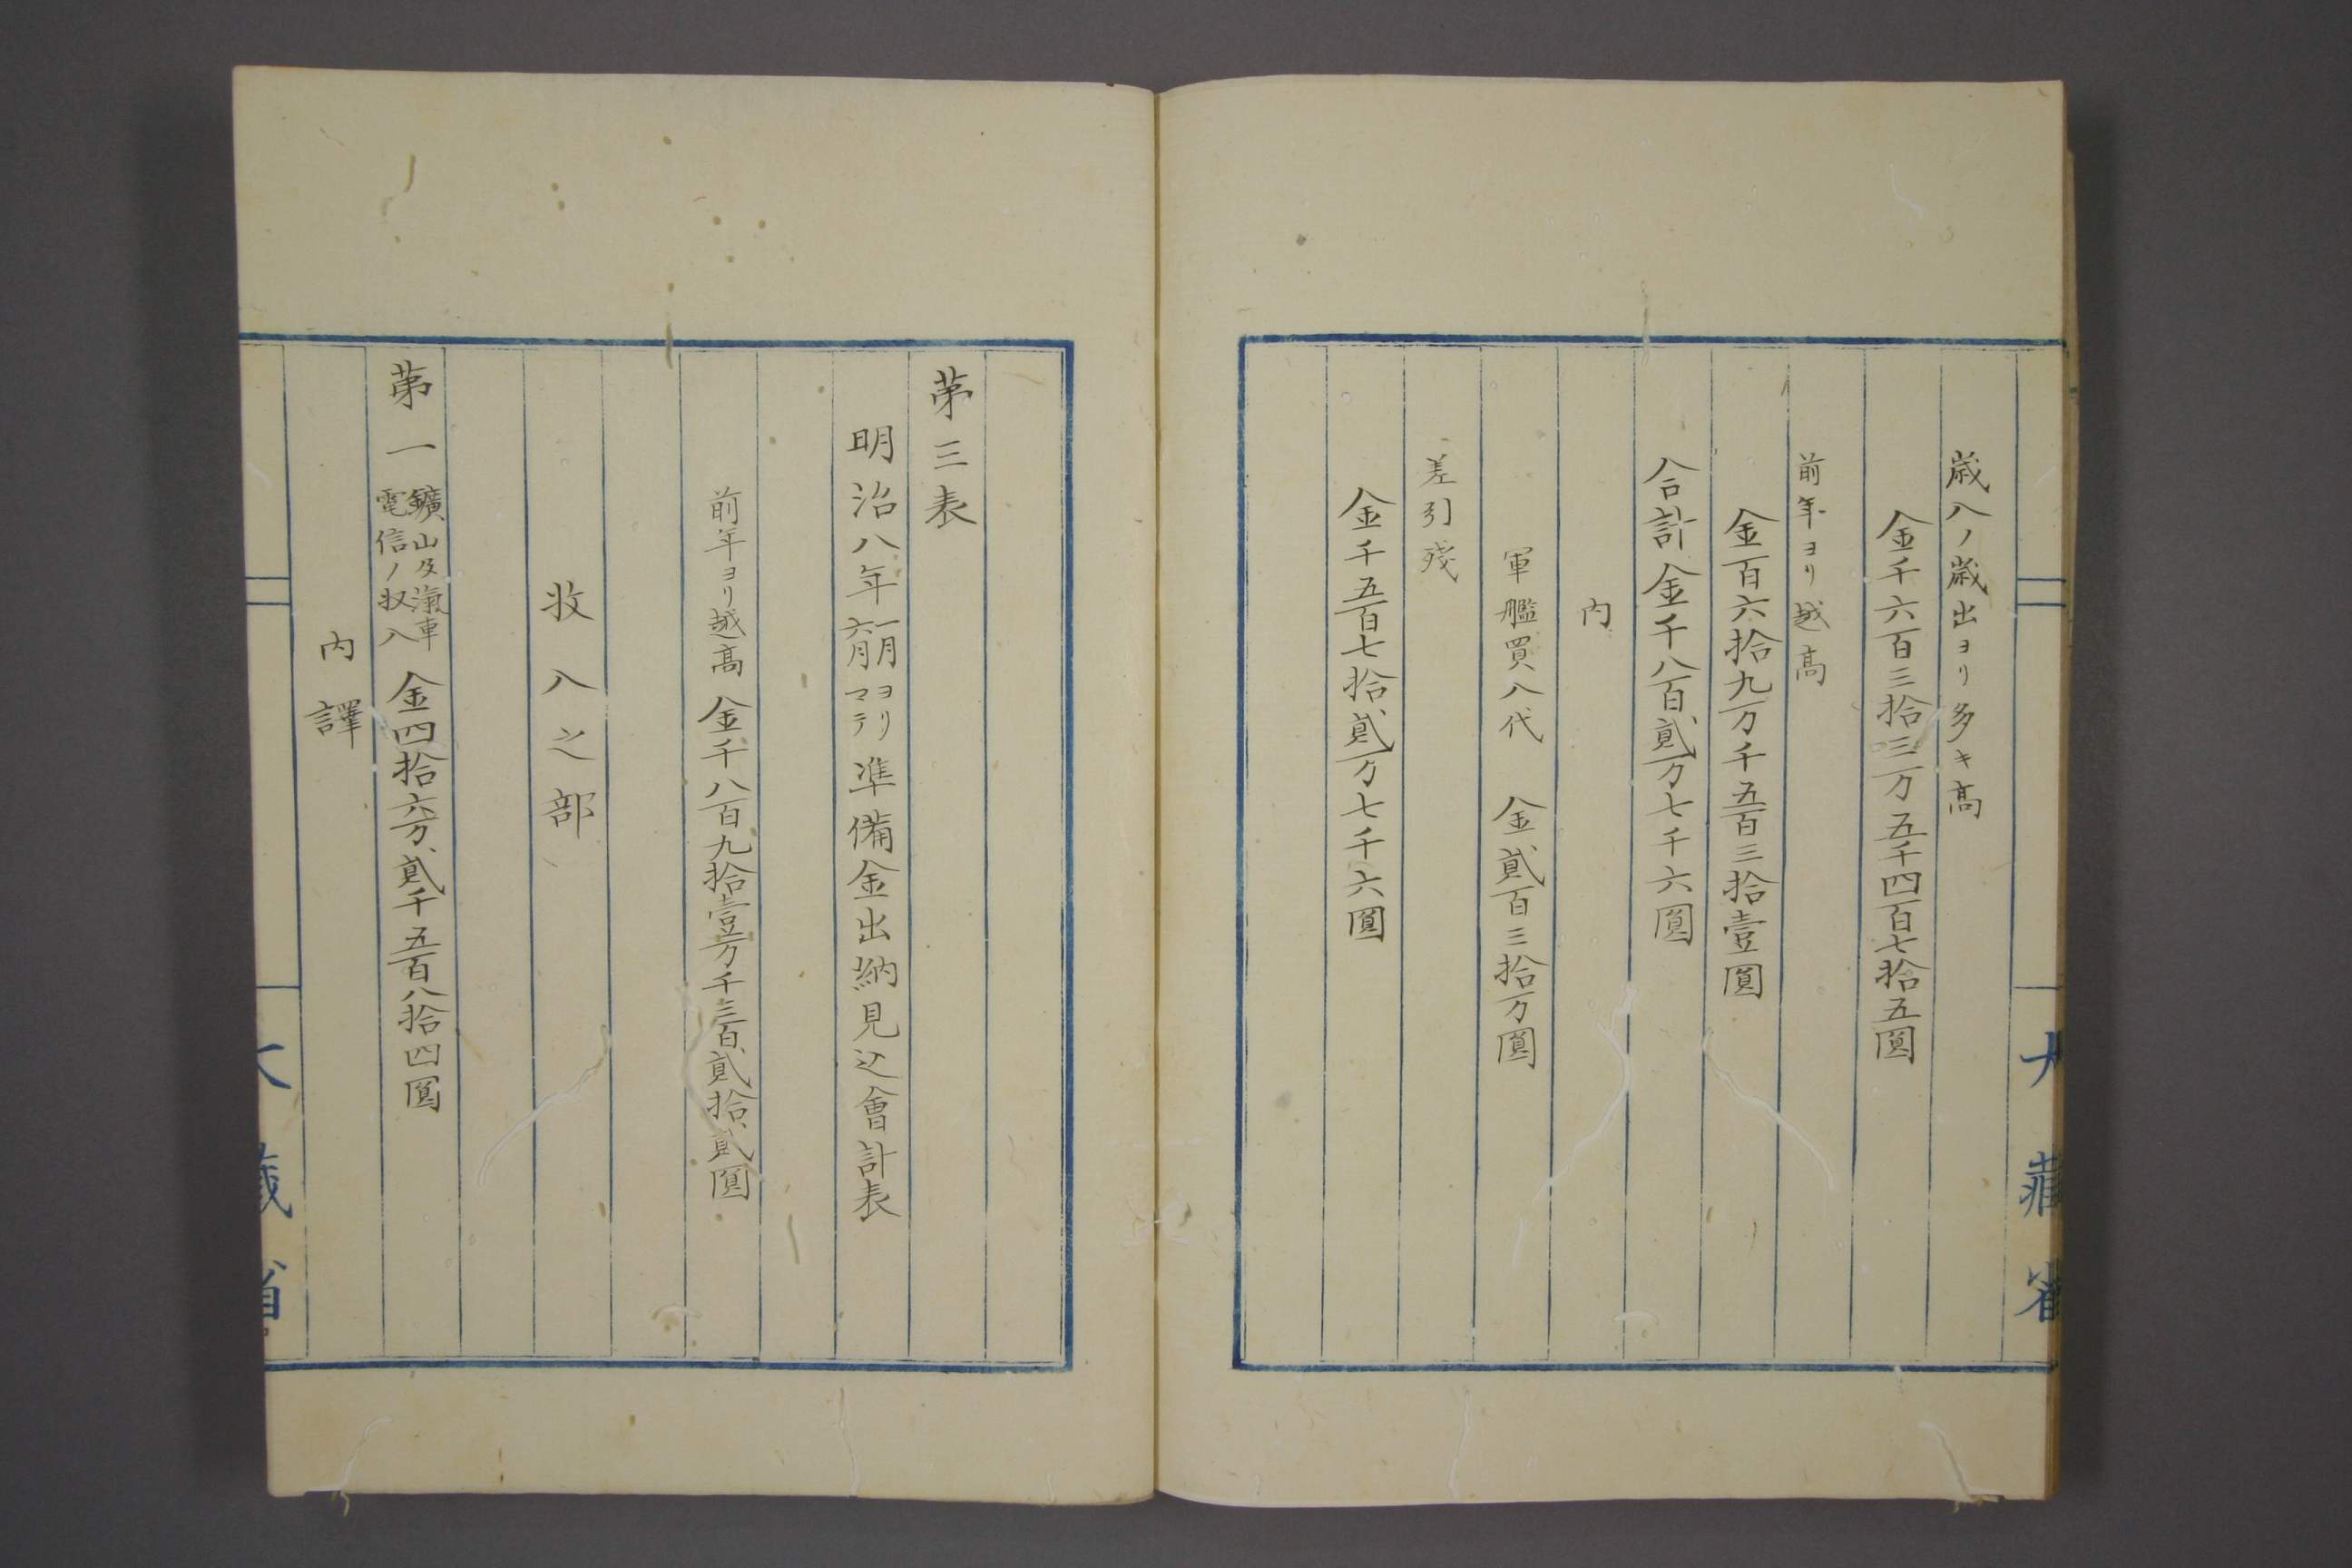 歳入ノ歳出ヨリ多キ高
金千六百三拾三万五千四百七拾五圓
前年ヨリ越高
金百六拾九万千五百三拾壹圓
合計金千八百貳万七千六圓
内
軍艦買入代 金貳百三拾万圓
差引残
金千五百七拾貳万七千六圓
大藏省
第三表
明治八年一月ヨリ六月マテ準備金出納見込會計表
前年ヨリ越高 金千八百九拾壹万千三百貳拾貳圓
收入之部
第一 鑛山及滊車電信ノ収入 金四拾六万貳千五百八拾四圓
内譯
大藏省